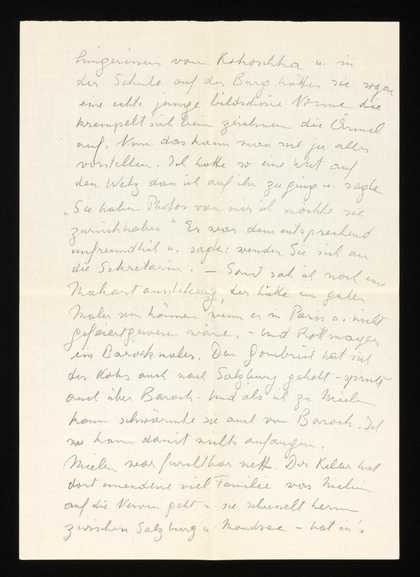 hingerissen von Kokoschka u. in
der Schule auf der Burg hatten sie sogar
eine echte junge bildschöne Nonne die
krempelt sich beim zeichnen die Ärmel
auf. Nun das kann man sich ja alles
vorstellen. Ich hatte so eine Wut auf
den Welz dass ich auf ihn zuging u. sagte
„Sie haben Photos von mir ich möchte sie
zurückhaben" Er war dementsprechend
unfreundlich u. sagte: wenden Sie sich an
die Sekretärin. — Sonst sah ich noch eine
Makart ausstellung, der hätte ein guter
Maler sein können wenn er in Paris u. nicht
gefeiert gewesen wäre. - Und Rottmayer
ein Barockmaler. Den Gombrich hat sich
der Koks auch nach Salzburg geholt - spricht
auch über Barock. Und als ich zu Mielein
kam schwärmte sie auch von Barock. Ich
kann damit nichts anfangen.
Mielein war furchtbar nett. Der hat
dort viel Familie was
auf die Nerven geht u. sie herum
zwischen Salzburg u. Mondsee - hat in's